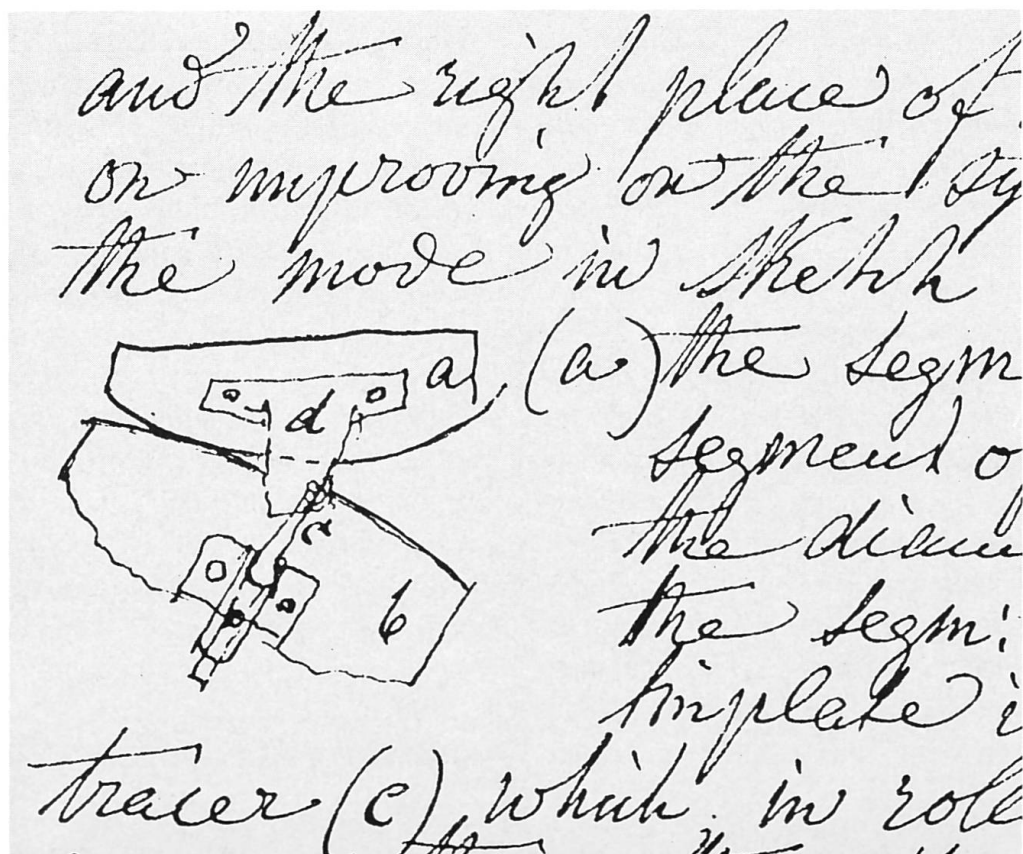 and the right place of
on improving on the sy
the mode in sketch
a (a) the segm
d
segment o
the diam
c
the segm:
b
tinplate i
tracer (c) which in role